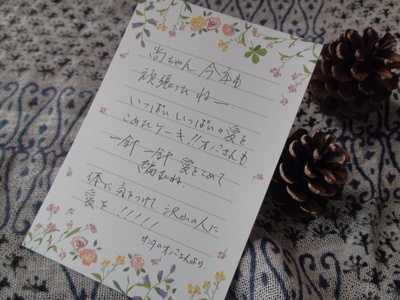 尚ちゃん 今年も
頑張ったねー
いっぱいいっぱいの愛を
こめたケーキ!!オバさんも
一針一針 愛をこめて
編むね、
体に気をつけて 沢山の人に
愛を!!!!!
オバさんより